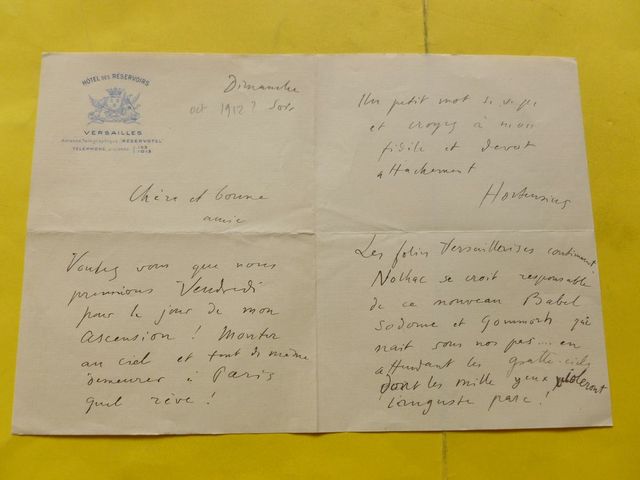 HÔTEL DES RÉSERVOIRS
VERSAILLES
Adresse Télégraphique: RÉSERVOTEL
TÉLÉPHONE
Dimanche
oct 1912? Soir
Chère et bonne
amie
Voulez vous que nous
prenions Vendredi
pour le jour de mon
Ascension! Monter
au ciel et tout de même
demeurer à Paris
quel rêve!
Un petit mot
et croyez à mon
fidèle et dévoué
attachement
Hortensius
Les folies Versaillaises continuent
Nolhac se croit responsable
de ce nouveau Babel
Sodome et Gommorh qui
nait sous nos pas... en
attendant les gratte-ciels
dont les mille yeux violeront
l'auguste parc!